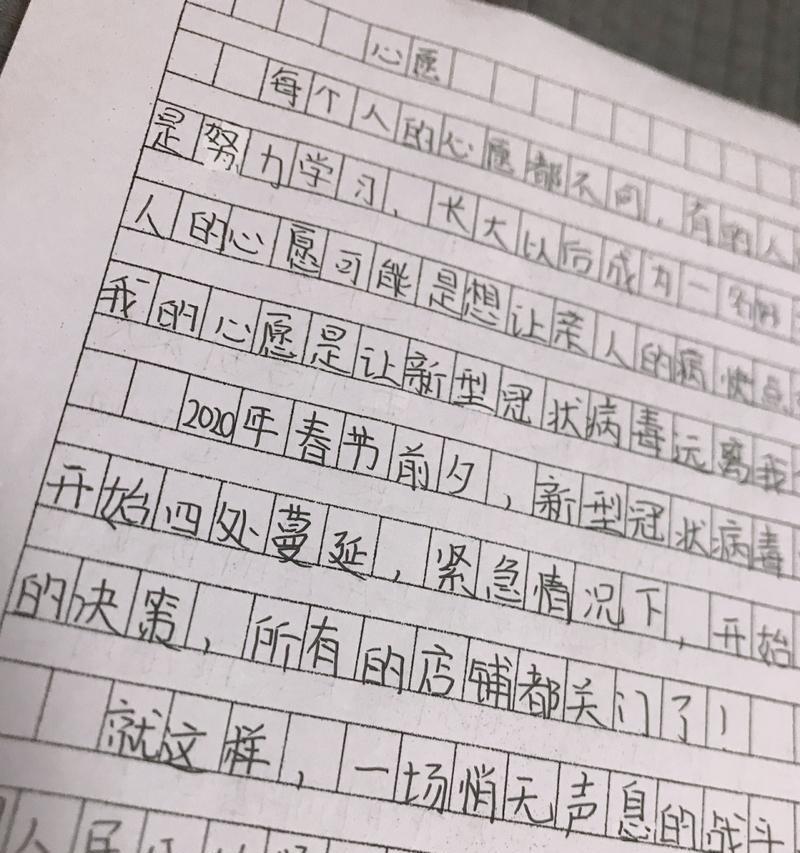 心愿
每个人的心愿都不同，有的人
是努力学习，长大以后成为一名好
人的心愿可能是想让亲人的病快点
我的心愿是让新型冠状病毒远离我
2020年春节前夕，新型冠状病毒
开始四处蔓延，紧急情况下，开始
的决策，所有的店铺都关门了！
就这样，一场悄无声息的战斗
人民